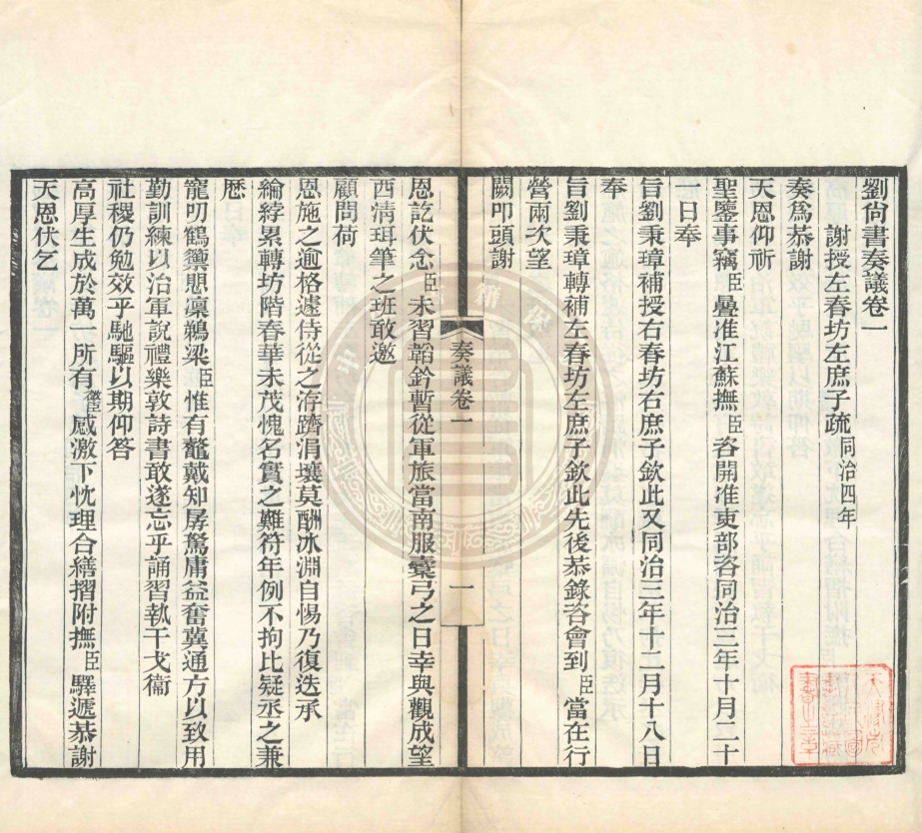 劉尙書奏議卷一
謝授左春坊左庶子疏同治四年
奏爲恭謝
天恩仰祈
聖鑒事竊臣疊准江蘇撫臣咨開准吏部咨同治三年十月二十
一日奉
旨劉秉璋補授右春坊右庶子欽此又同治三年十二月十八日
奉
旨劉秉璋轉補左春坊左庶子欽此先後恭錄咨會到臣當在行
營兩次望
闕叩頭謝
奏議卷一
一
恩訖伏念臣未習韜鈐暫從軍旅當南服櫜弓之日幸與觀成望
西淸珥筆之班敢邀
顧問荷
恩施之逾格遽侍從之洊躋涓壤莫酬冰淵自惕乃復迭承
綸綍累轉坊階春華未茂愧名實之難符年例不拘比疑丞之兼
歷
寵叨鶴籞慙凜鵜梁臣惟有鼇戴知孱駑庸益奮冀通方以致用
勤訓練以治軍說禮樂敦詩書敢遂忘乎誦習執干戈衞
社稷仍勉效乎馳驅以期仰答
高厚生成於萬一所有感激下忱理合繕摺附撫臣驛遞恭謝
天恩伏乞